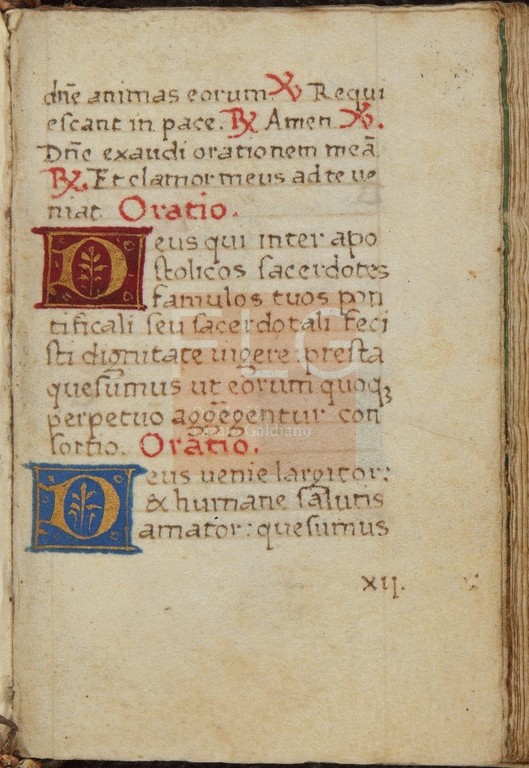 dn̄e animas eorum. ℣ Requi
escant in pace. ℟ Amen ℣.
Dn̄e exaudi orationem meā
℟. Et clamor meus ad te ve
niat Oratio.
Deus qui inter apo
stolicos sacerdotes
famulos tuos pon
tificali seu sacerdotali feci
sti dignitate vigere: presta
quesumus ut eorum quoqꝫ
perpetuo aggregentur con
sortio. Oratio.
Deus venie largitor:
& humane salutis
amator: quesumus
xij.
FLG
Lázaro Galdiano